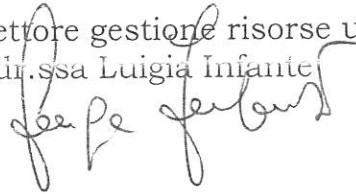 ettore gestione risorse u
dr.ssa Luigia Infante